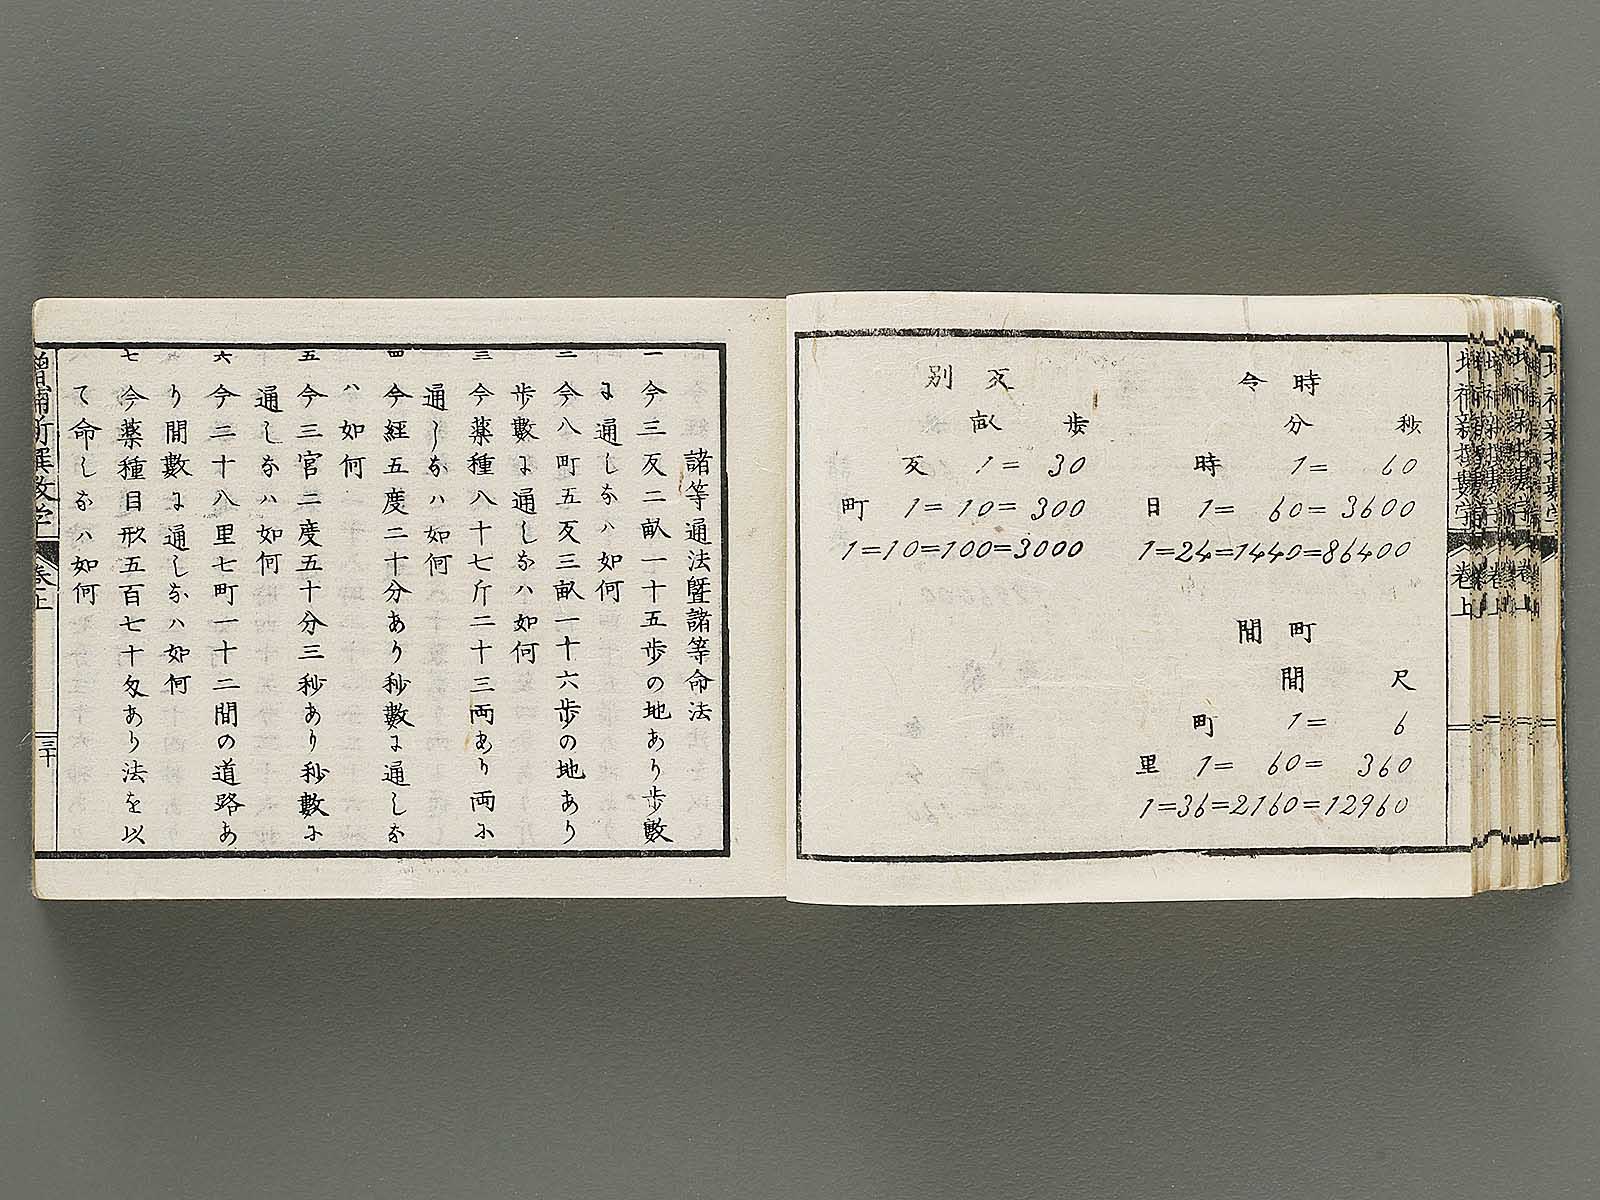 時令
秒
分
1= 60
時
1= 60= 3600
日
1=24=1440=86400
町間
尺
間
1= 6
町
1= 60= 360
里
1=36=2160=12960
反別
歩
畝
1= 30
反
1= 10= 300
町
1=10=100=3000
諸等通法曁諸等命法
一 今三反二畝一十五歩の地あり歩數
に通しなハ如何
二 今八町五反三畝一十六歩の地あり
歩數に通しなハ如何
三 今薬種八十七斤二十三両あり両に
通しなハ如何
四 今経五度二十分あり秒數に通しな
ハ如何
五 今三官二度五十分三秒あり秒數に
通しなハ如何
六 今二十八里七町一十二間の道路あ
り間數に通しなハ如何
七 今薬種目形五百七十匁あり法を以
て命しなハ如何
増補新撰數学
卷上
三十